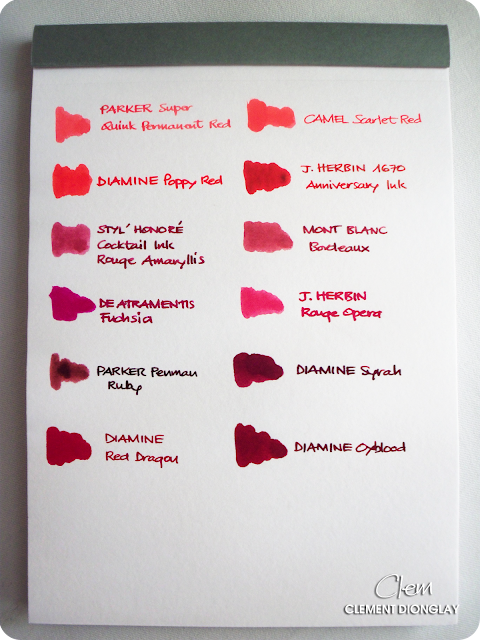 PARKER Super
Quink Permanent Red
CAMEL Scarlet Red
DIAMINE Poppy Red
J. HERBIN 1670
Anniversary Ink
STYL' HONORÉ
Cocktail Ink
Rouge Amaryllis
MONT BLANC
Bordeaux
DE ATRAMENTIS
Fuchsia
J. HERBIN
Rouge Opera
PARKER Penman
Ruby
DIAMINE Syrah
DIAMINE
Red Dragon
DIAMINE Oxblood
Clem
CLEMENT DIONGLAY